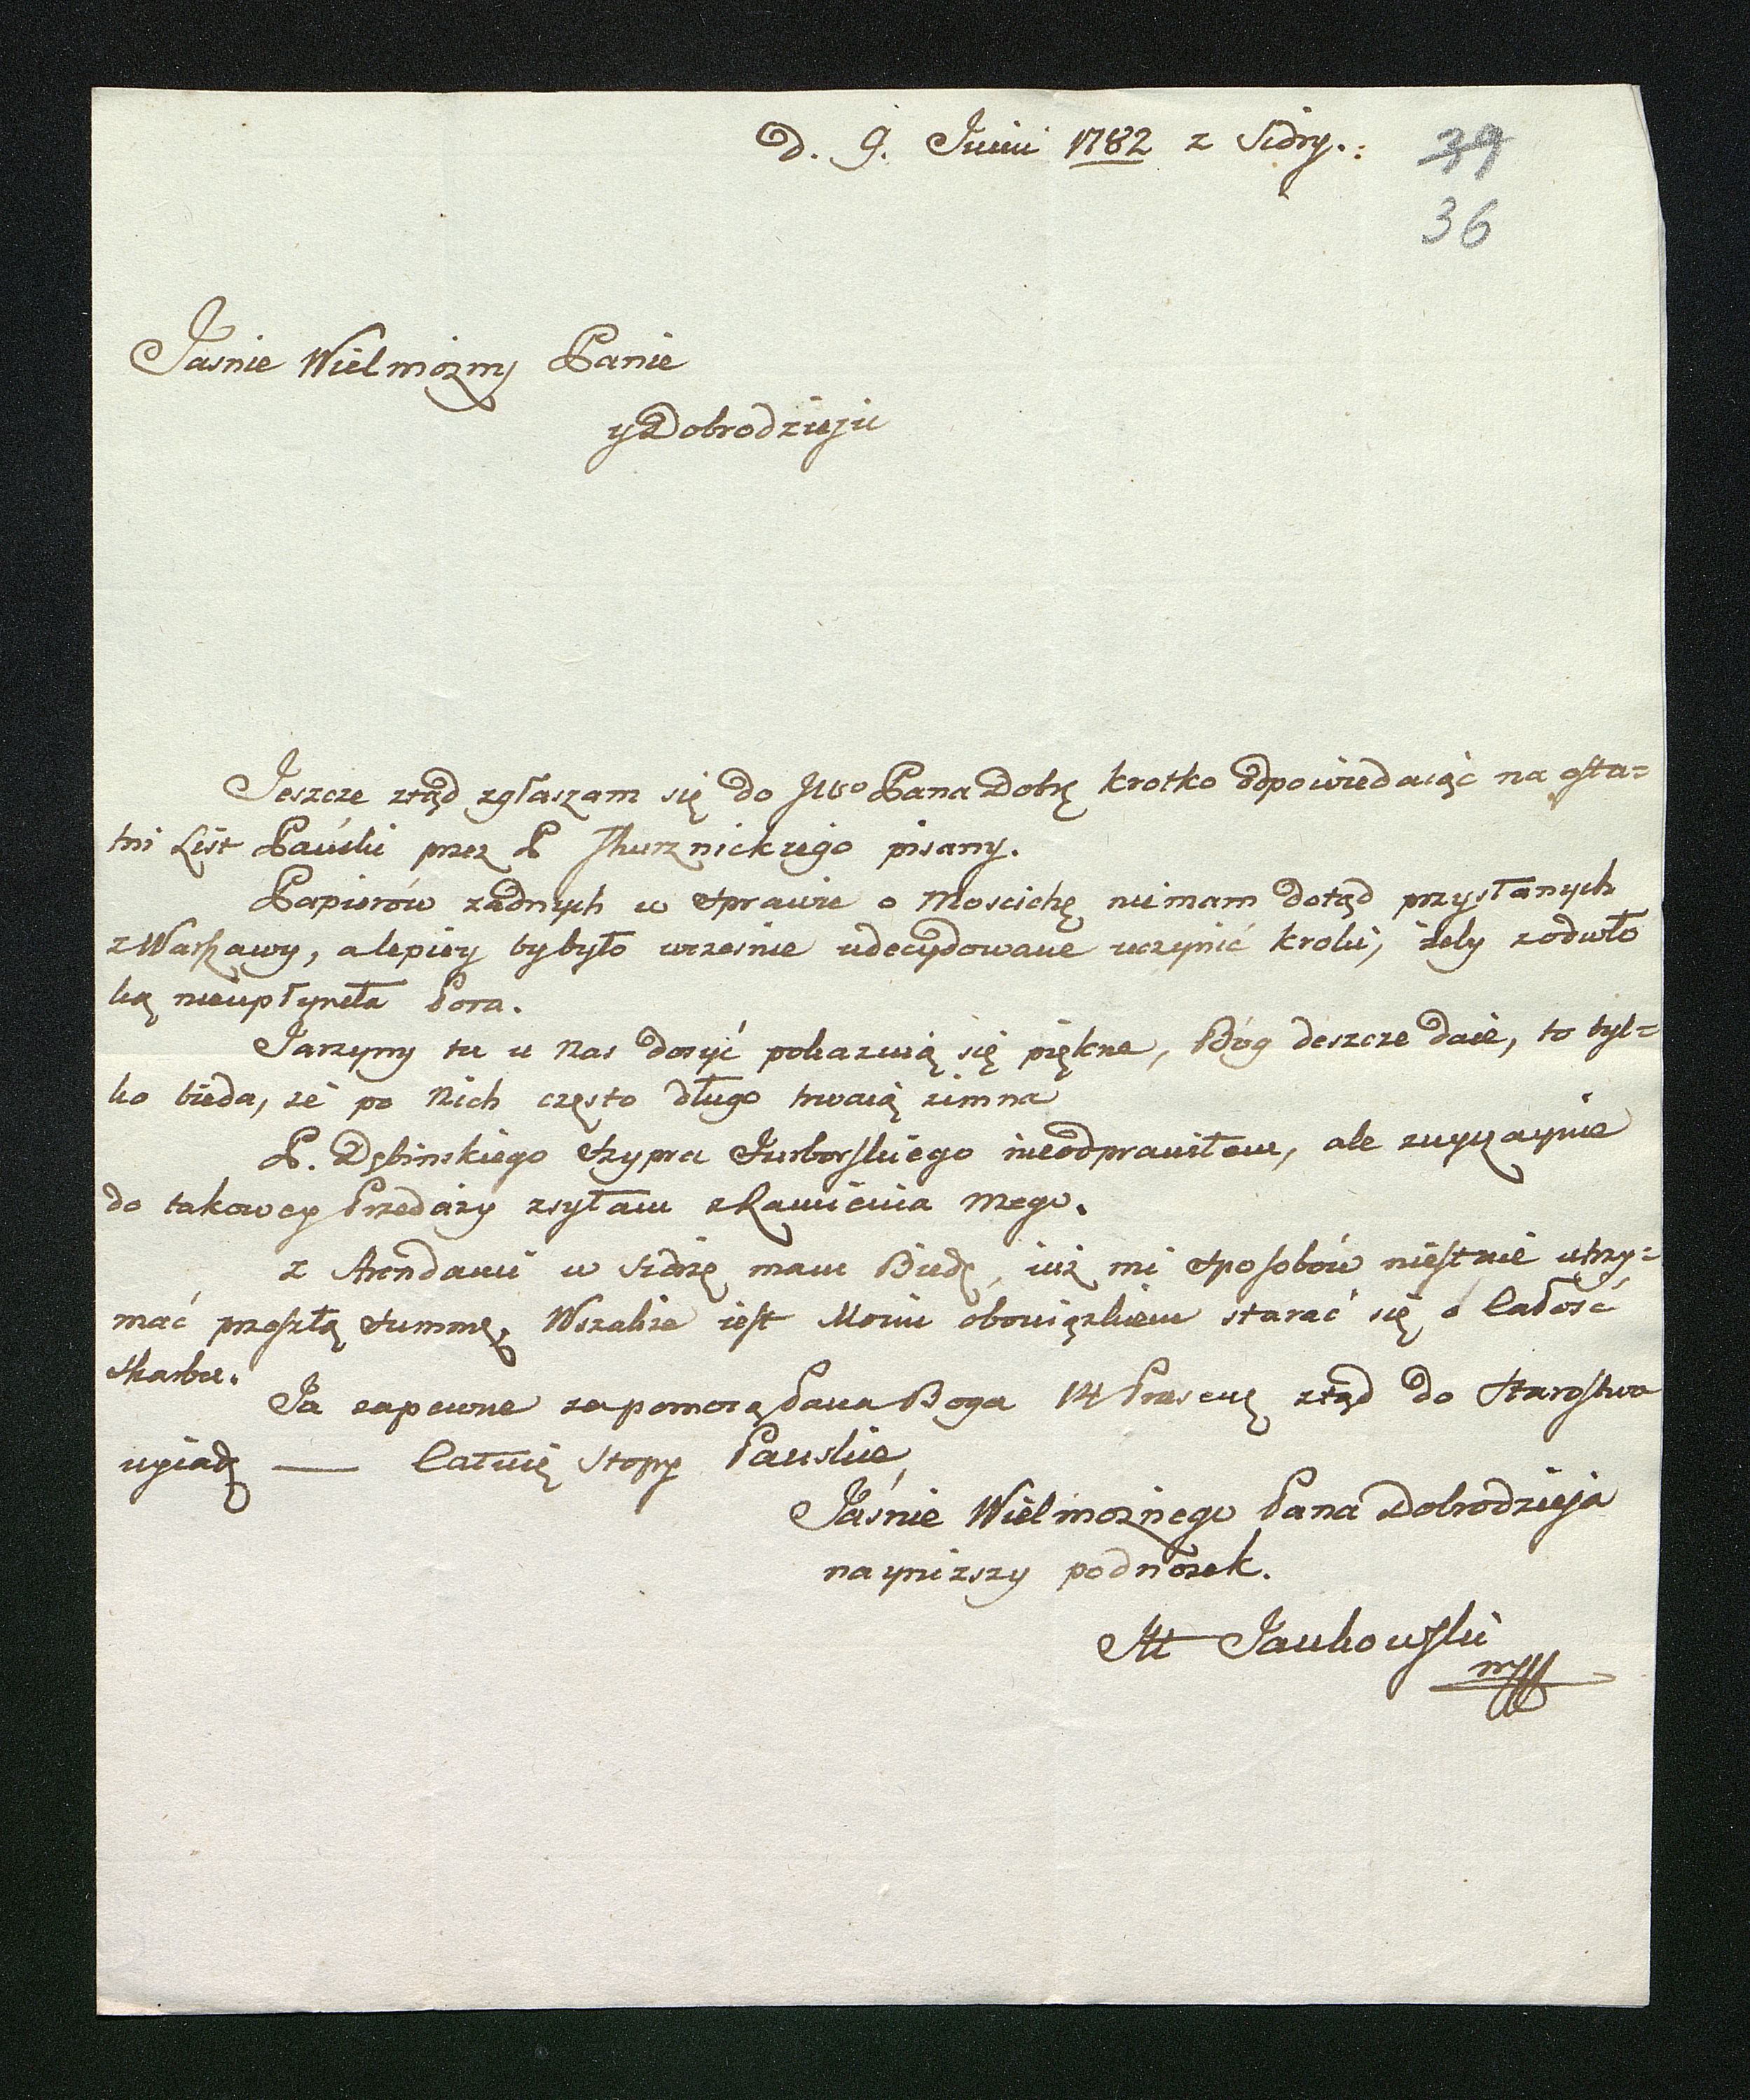 D. 9. Junii 1782 z Sidry.:
39
36
Jasnie Wielmożny Panie
y Dobrodzieju
Jeszcze ztąd zgłaszam się do JWo Pana Dobrę krotko odpowiedaiąc na osta=
tni List Pański przez P Thurznickiego pisany.
Papierów żadnych w sprawie o Moscichę niemam dotąd przysłanych
z Warszawy, a lepiey by było wcześnie udecydowane uczynić kroki, żeby zodwło
ką nieupłyneła Pora.
Jarzyny tu u Nas dosyć pokazuią się piękne, Bóg deszcze daie, to tyl=
ko bieda, że po Nich często długo trwaią zimna
P. Dębinskiego Szypra Jurborskiego nieodprawiłem, ale zwyczaynie
do takowey Przedaży zsyłam z Ramienia mego.
z Arendami w Sidrze mam Biedę, iuż mi sposobów niestaie utrzy=
mać przeszłą Summę, Wszakże iest Moim obowiązkiem starać się o Całość
Skarbu.
Ja zapewne za pomocą Pana Boga 14 Praesentis ztąd do Starostwa
wyiadę —— Całuię Stopy Pańskie,
Jaśnie Wielmożnego Pana Dobrodzieja
nayniższy podnóżek.
M Jankowski
mpp